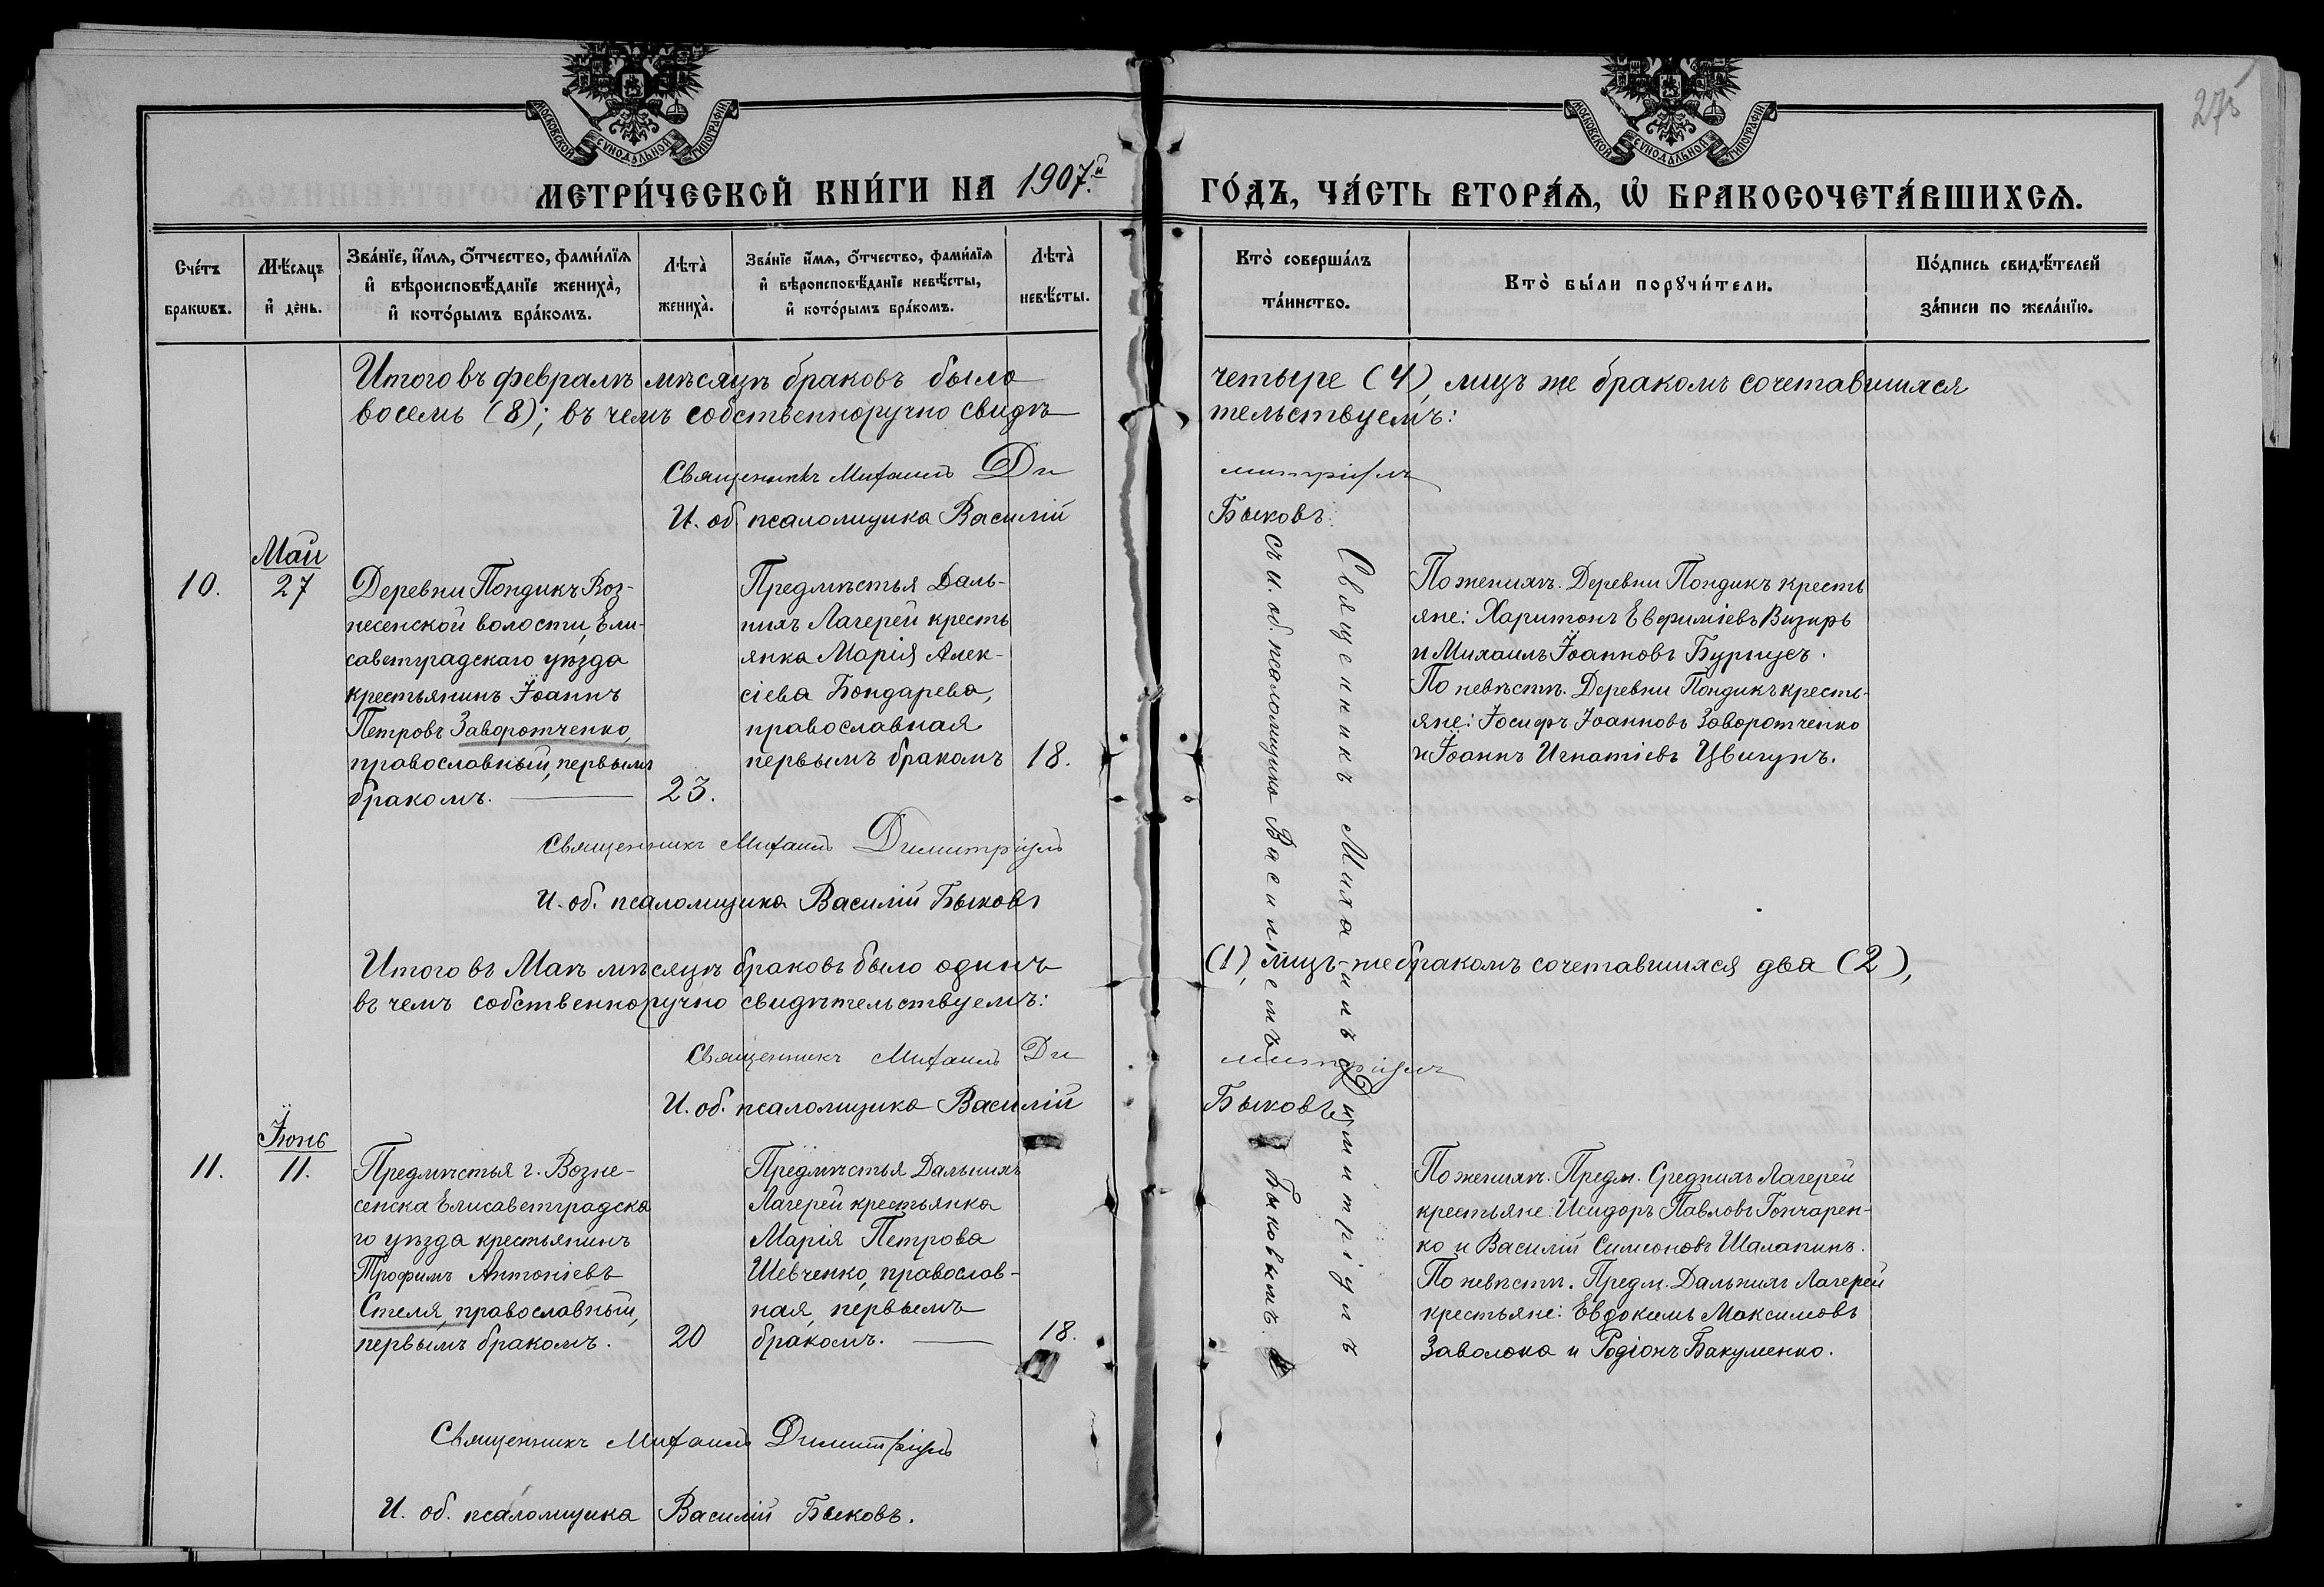 275
МОСКОВСКОЙ СѴНОДАЛЬНОЙ ТИПОГРАФІИ
МОСКОВСКОЙ СѴНОДАЛЬНОЙ ТИПОГРАФІИ
МЕТРИ́ЧЕСКОЙ КНИ́ГИ НА 1907.й ГО́ДЪ, ЧА́СТЬ ВТОРА́Ѧ, Ѡ҆ БРАКОСОЧЕТА́ВШИХСѦ.
Сче́тъ бракѡвъ.
Мѣ́сяцъ и҆ де́нь.
Зва́нїе, и҆́мѧ, ѻ҆́тчество, фами́лїѧ и҆ вѣроисповѣ́данїе жениха̀, и҆ кото́рымъ бра́комъ.
Лѣта̀ жениха̀.
Зва́нїе и҆́мѧ, ѻ҆́тчество, фами́лїѧ и҆ вѣроисповѣ́данїе невѣ́сты, и҆ кото́рымъ бра́комъ.
Лѣта̀ невѣ́сты.
Кто̀ соверша́лъ та́инство.
Кто̀ бы́ли порꙋчи́тели.
По́дпись свидѣ́телей за́писи по жела́нїю.
Итого въ февралѣ мѣсяцѣ браковъ было четыре (4), лицъ же бракомъ сочетавшихся
восемь (8); въ чемъ собственноручно свидѣтельствуемъ:
Священникъ Михаилъ Димитріулъ
И. об. псаломщика Василій Быковъ.
10.
Май
27
Деревни Пондикъ Воз-
несенской волости, Ели-
саветградскаго уѣзда
крестьянинъ Іоаннъ
Петровъ Заворотченко,
православный, первымъ
бракомъ.
23.
Предмѣстья Даль-
нихъ Лагерей кресть
янка Марія Алек-
сіева Бондарева,
православная
первымъ бракомъ
18.
Священникъ Михаилъ Димитріулъ
съ и. об. псаломщика Василіемъ Быковымъ.
По женихѣ. Деревни Пондикъ кресть
яне: Харитонъ Евфиміевъ Визирь
и Михаилъ Іоанновъ Бурнусъ.
По невѣстѣ. Деревни Пондикъ кресть-
яне: Іосифъ Іоанновъ Заворотченко
и Іоаннъ Игнатіевъ Цвигунъ.
Священникъ Михаилъ Димитріулъ
И. об. псаломщика Василій Быковъ
Итого въ Маѣ мѣсяцѣ браковъ было одинъ (1), лицъ-же бракомъ сочетавшихся два (2),
въ чемъ собственноручно свидѣтельствуемъ:
Священникъ Михаилъ Димитріулъ
И. об. псаломщика Василій Быковъ
11.
Іюнь
11.
Предмѣстья г. Возне-
сенска Елисаветградска
го уѣзда крестьянинъ
Трофимъ Антоніевъ
Стеля, православный,
первымъ бракомъ.
20
Предмѣстья Дальнихъ
Лагерей крестьянка
Марія Петрова
Шевченко, православ-
ная, первымъ
бракомъ.
18.
По женихѣ. Предм. Среднихъ Лагерей
крестьяне: Исидоръ Павловъ Гончарен-
ко и Василій Симеоновъ Шалапинъ.
По невѣстѣ. Предм. Дальнихъ Лагерей
крестьяне: Евдокимъ Максимовъ
Заволока и Родіонъ Бакуменко.
Священникъ Михаилъ Димитріулъ
И. об. псаломщика Василій Быковъ.